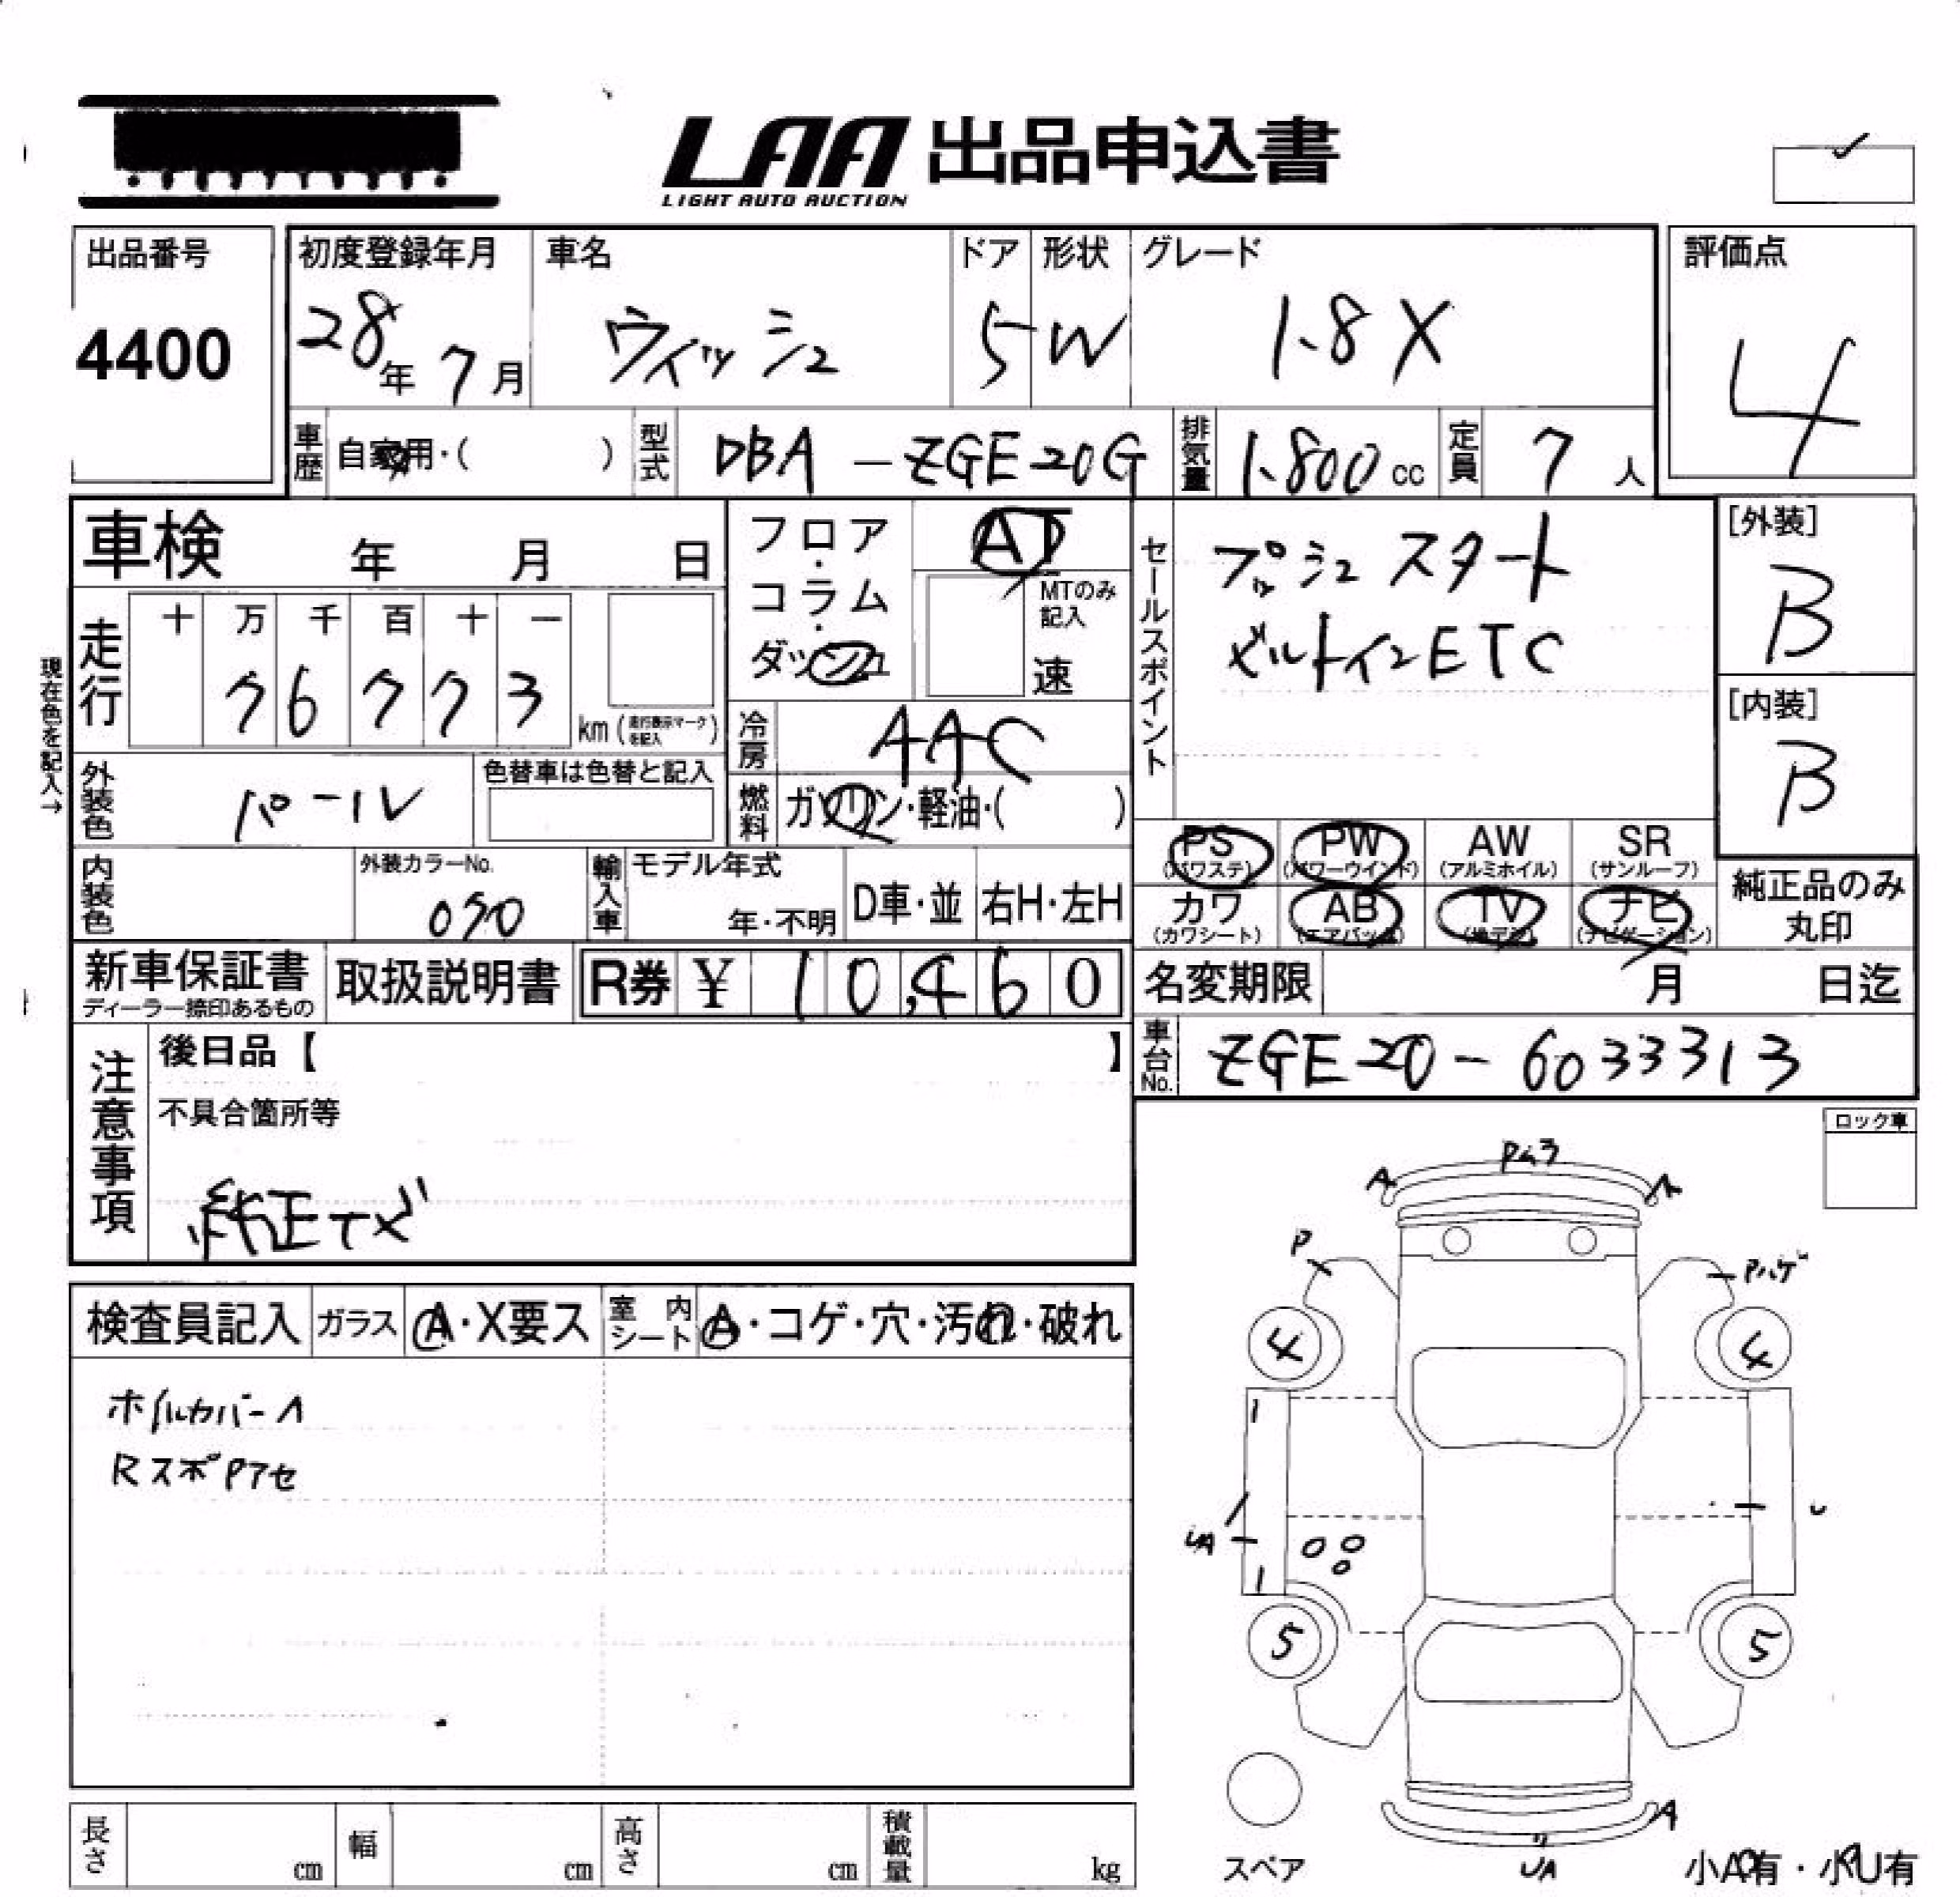 LAA 出品申込書
LIGHT AUTO AUCTION
出品番号
4400
初度登録年月
28年 7月
車名
ウィッシュ
ドア
5
形状
W
グレード
1.8X
評価点
4
車歴 自家用・( )
型式 DBA-ZGE20G
排気量 1.800 cc
定員 7 人
車検 年 月 日
フロア・コラム・ダッシュ
AT
MTのみ記入
速
セールスポイント
プッシュスタート
ビルトインETC
[外装]
B
[内装]
B
現在色を記入→
走行
十 万 千 百 十 一
7 6 7 7 3
km (走行表示マークを記入)
冷房 AAC
外装色 パール
色替車は色替と記入
燃料 ガソリン・軽油・( )
PS (パワステ)
PW (パワーウインド)
AW (アルミホイル)
SR (サンルーフ)
カワ (カワシート)
AB (エアバック)
TV (地デジ)
ナビ (ナビゲーション)
純正品のみ丸印
内装色
外装カラーNo.
070
輸入車
モデル年式
年・不明
D車・並
右H・左H
新車保証書
ディーラー捺印あるもの
取扱説明書
R券 ¥ 10,460
名変期限 月 日迄
車台No. ZGE20-6033313
注意事項
後日品【 】
不具合箇所等
純正ナビ
ロック車
検査員記入
ガラス A・X要ス
室内シート A・コゲ・穴・汚れ・破れ
ホイルカバーA
RスポPアセ
Pa3
A
A
P
Pハゲ
4
4
UA
U
5
5
A
UA
スペア
小A有・小U有
長さ cm
幅 cm
高さ cm
積載量 kg